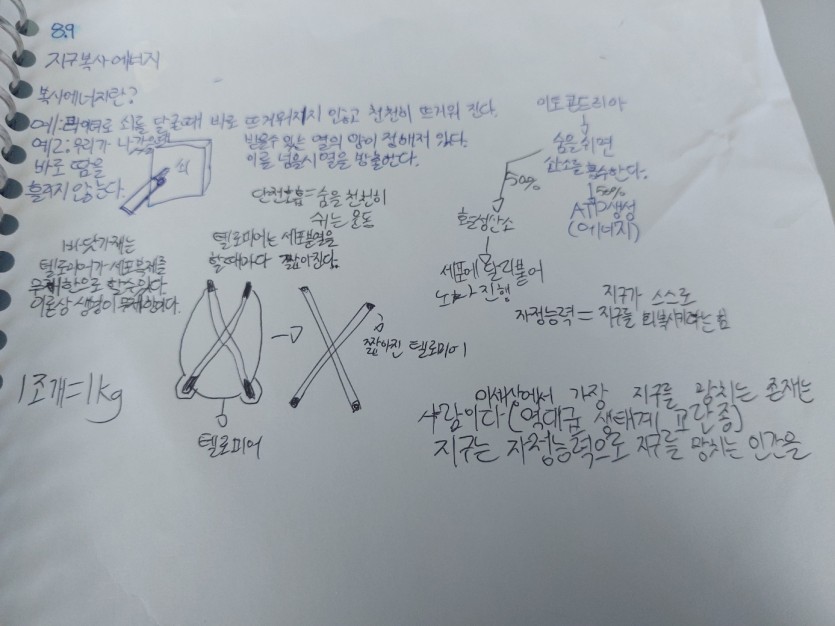 8.9
지구복사에너지
복사에너지란?
예: 로 쇠를 달굴때 바로 뜨거워지지 않고 천천히 뜨거워 진다.
예2: 우리가
바로 땀을
흘리지 않는다.
쇠
받을수 있는 열의 양이 정해져 있다.
이를 넘을시 열을 방출한다.
단전호흡=숨을 천천히
쉬는 운동
미토콘드리아
숨을 쉬면
산소를 흡수한다.
50%
50%
ATP생성
(에너지)
활성산소
세포에 달라붙어
노화 진행
바닷가재는
텔로미어가 세포복제를
무제한으로 할수있다.
이론상 생명이 무제한이다.
텔로미어는 세포분열을
할때마다 짧아진다.
짧아진 텔로미어
텔로미어
1조개=1kg
자정능력= 지구가 스스로
지구를 회복시키는 힘
이세상에서 가장 지구를 망치는 존재는
사람이다(역대급 생태계 교란종)
지구는 자정능력으로 지구를 망치는 인간을